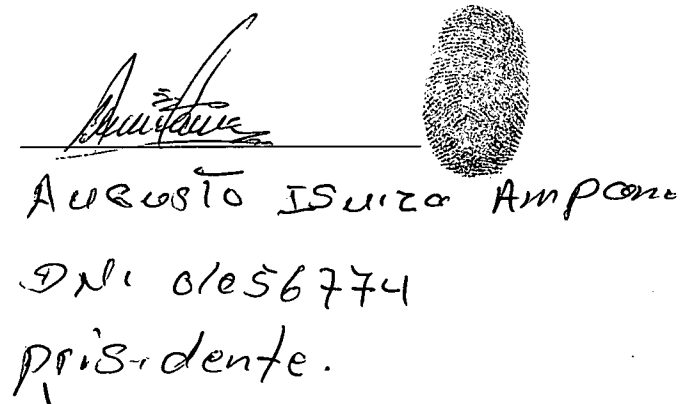 Augusto Isuiza Ampcono
DNI 01056774
prisidente.